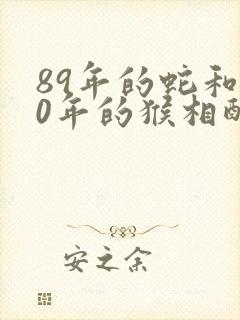 89年的蛇和
0年的猴相配
安之余